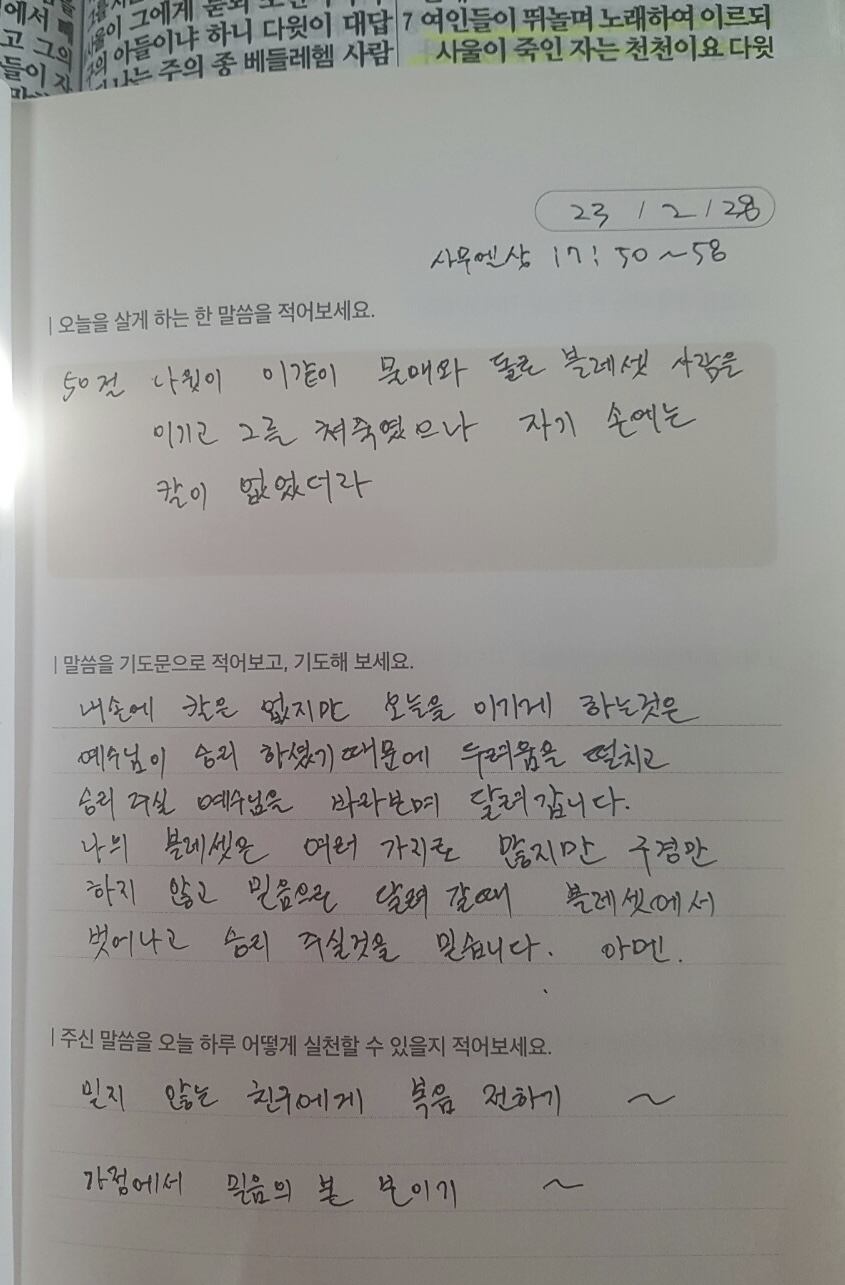 에서 빼
고 그의
들이 자
사울이 그에게 묻되
의 아들이냐 하니 다윗이 대답
나는 주의 종 베들레헴 사람
7 여인들이 뛰놀며 노래하여 이르되
사울이 죽인 자는 천천이요 다윗
23 / 2 / 28
사무엘상 17:50~58
| 오늘을 살게 하는 한 말씀을 적어보세요.
50절 다윗이 이같이 물매와 돌로 블레셋 사람을
이기고 그를 쳐죽였으나 자기 손에는
칼이 없었더라
| 말씀을 기도문으로 적어보고, 기도해 보세요.
내손에 칼은 없지만 오늘을 이기게 하는것은
예수님이 승리 하셨기때문에 두려움을 떨치고
승리 주실 예수님을 바라보며 달려갑니다.
나의 블레셋은 여러 가지로 많지만 구경만
하지 않고 믿음으로 달려 갈때 블레셋에서
벗어나고 승리 주실것을 믿습니다. 아멘.
| 주신 말씀을 오늘 하루 어떻게 실천할 수 있을지 적어보세요.
믿지 않는 친구에게 복음 전하기 ~
가정에서 믿음의 본 보이기 ~